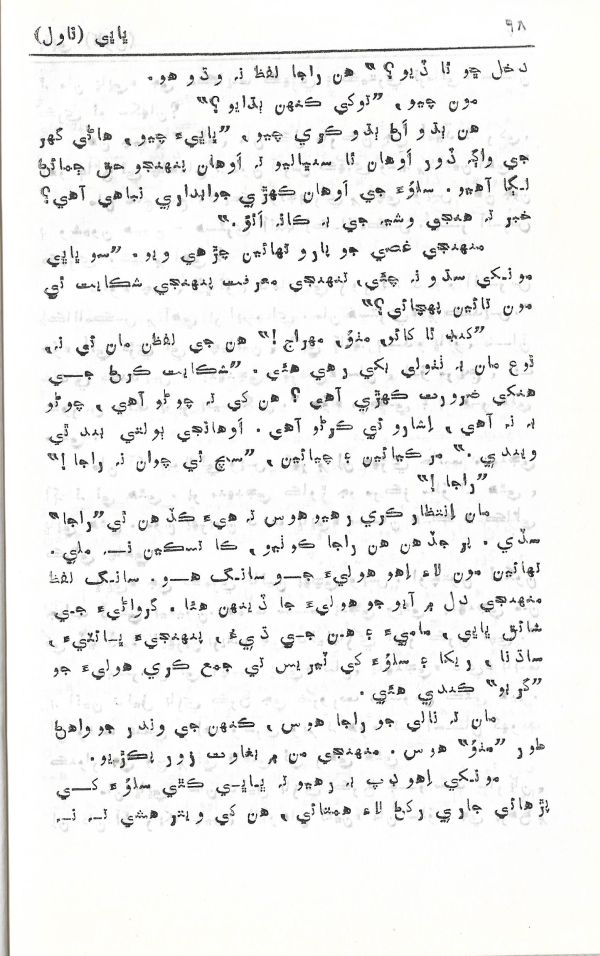 پاپي (ناول)
۹۸
دخل ڇو ٿا ڏيو؟” هن راجا لفظ نہ وڌو هو.
مون چيو، “توکي ڪنهن ٻڌايو؟”
هن ٻڌو اڻ ٻڌو ڪري چيو، “پاپيءَ چيو، هاڻي گهر
جي واڳہ ڏور اوهان ٿا سنڀاليو تہ اوهان پنهنجو حق ڄمائڻ
لڳا آهيو. سلوءَ جي اوهان کهڙي جوابداري نباهي آهي؟
خبر تہ هنجي وشيہ جي بہ ڪانہ اٿوَ.”
منهنجي غصي جو پارو ٿهائين چڙهي ويو. “سو پاپي
مونکي سڌو نہ چئي، تنهنجي معرفت پنهنجي شڪايت ٿي
مون تائين پهچائي؟”
“ڪٿي ٿا کائو، منوُ، مهراج!” هن جي لفظن مان ئي نہ،
ٽوع مان بہ ٺٺولي بکي رهي هئي. “شڪايت ڪرڻ جي
هنکي ضرورت ڪهڙي آهي؟ هن کي تہ چوڻو آهي، چوڻو
بہ نہ آهي، اشارو ئي ڪرڻو آهي. اوهانجي ٻولتي بند ٿي
ويندي.” مرڪيائين ۽ چيائين، “سچ ٿي چوان نہ راجا!”
“راجا!”
مان انتظار ڪري رهيو هوس تہ هيءَ ڪڏهن ٿي “راجا”
سڏي. پر جڏهن هن راجا ڪوٺيو، ڪا تسڪين نہ ملي.
تهائين مون لاءِ اهو هوليءَ جو سانگ هو. سانگ لفظ
منهنجي دل ۾ آيو جو هوليءَ جا ڏينهن هئا. گرواڻيءَ جي
شائق پاپي، ماميءَ ۽ هن جي ڌيءَ، پنهنجيءَ ڀائٽيءَ،
ساڌنا، ريکا ۽ سلوءَ کي ٽيرس تي جمع ڪري هوليءَ جو
“گربو” ڪندي هئي.
مان تہ نالي جو راجا هوس، ڪنهن جي وندر جو واهڻ
طور “منوُ” هوس. منهنجي من ۾ بغاوت زور پڪڙيو.
مونکي اهو ڊپ بہ رهيو تہ پاپي ڪٿي سلوُءَ کي
پڙهائي جاري رکڻ لاءِ همتائي، هن کي ويتر هشي نہ نہ